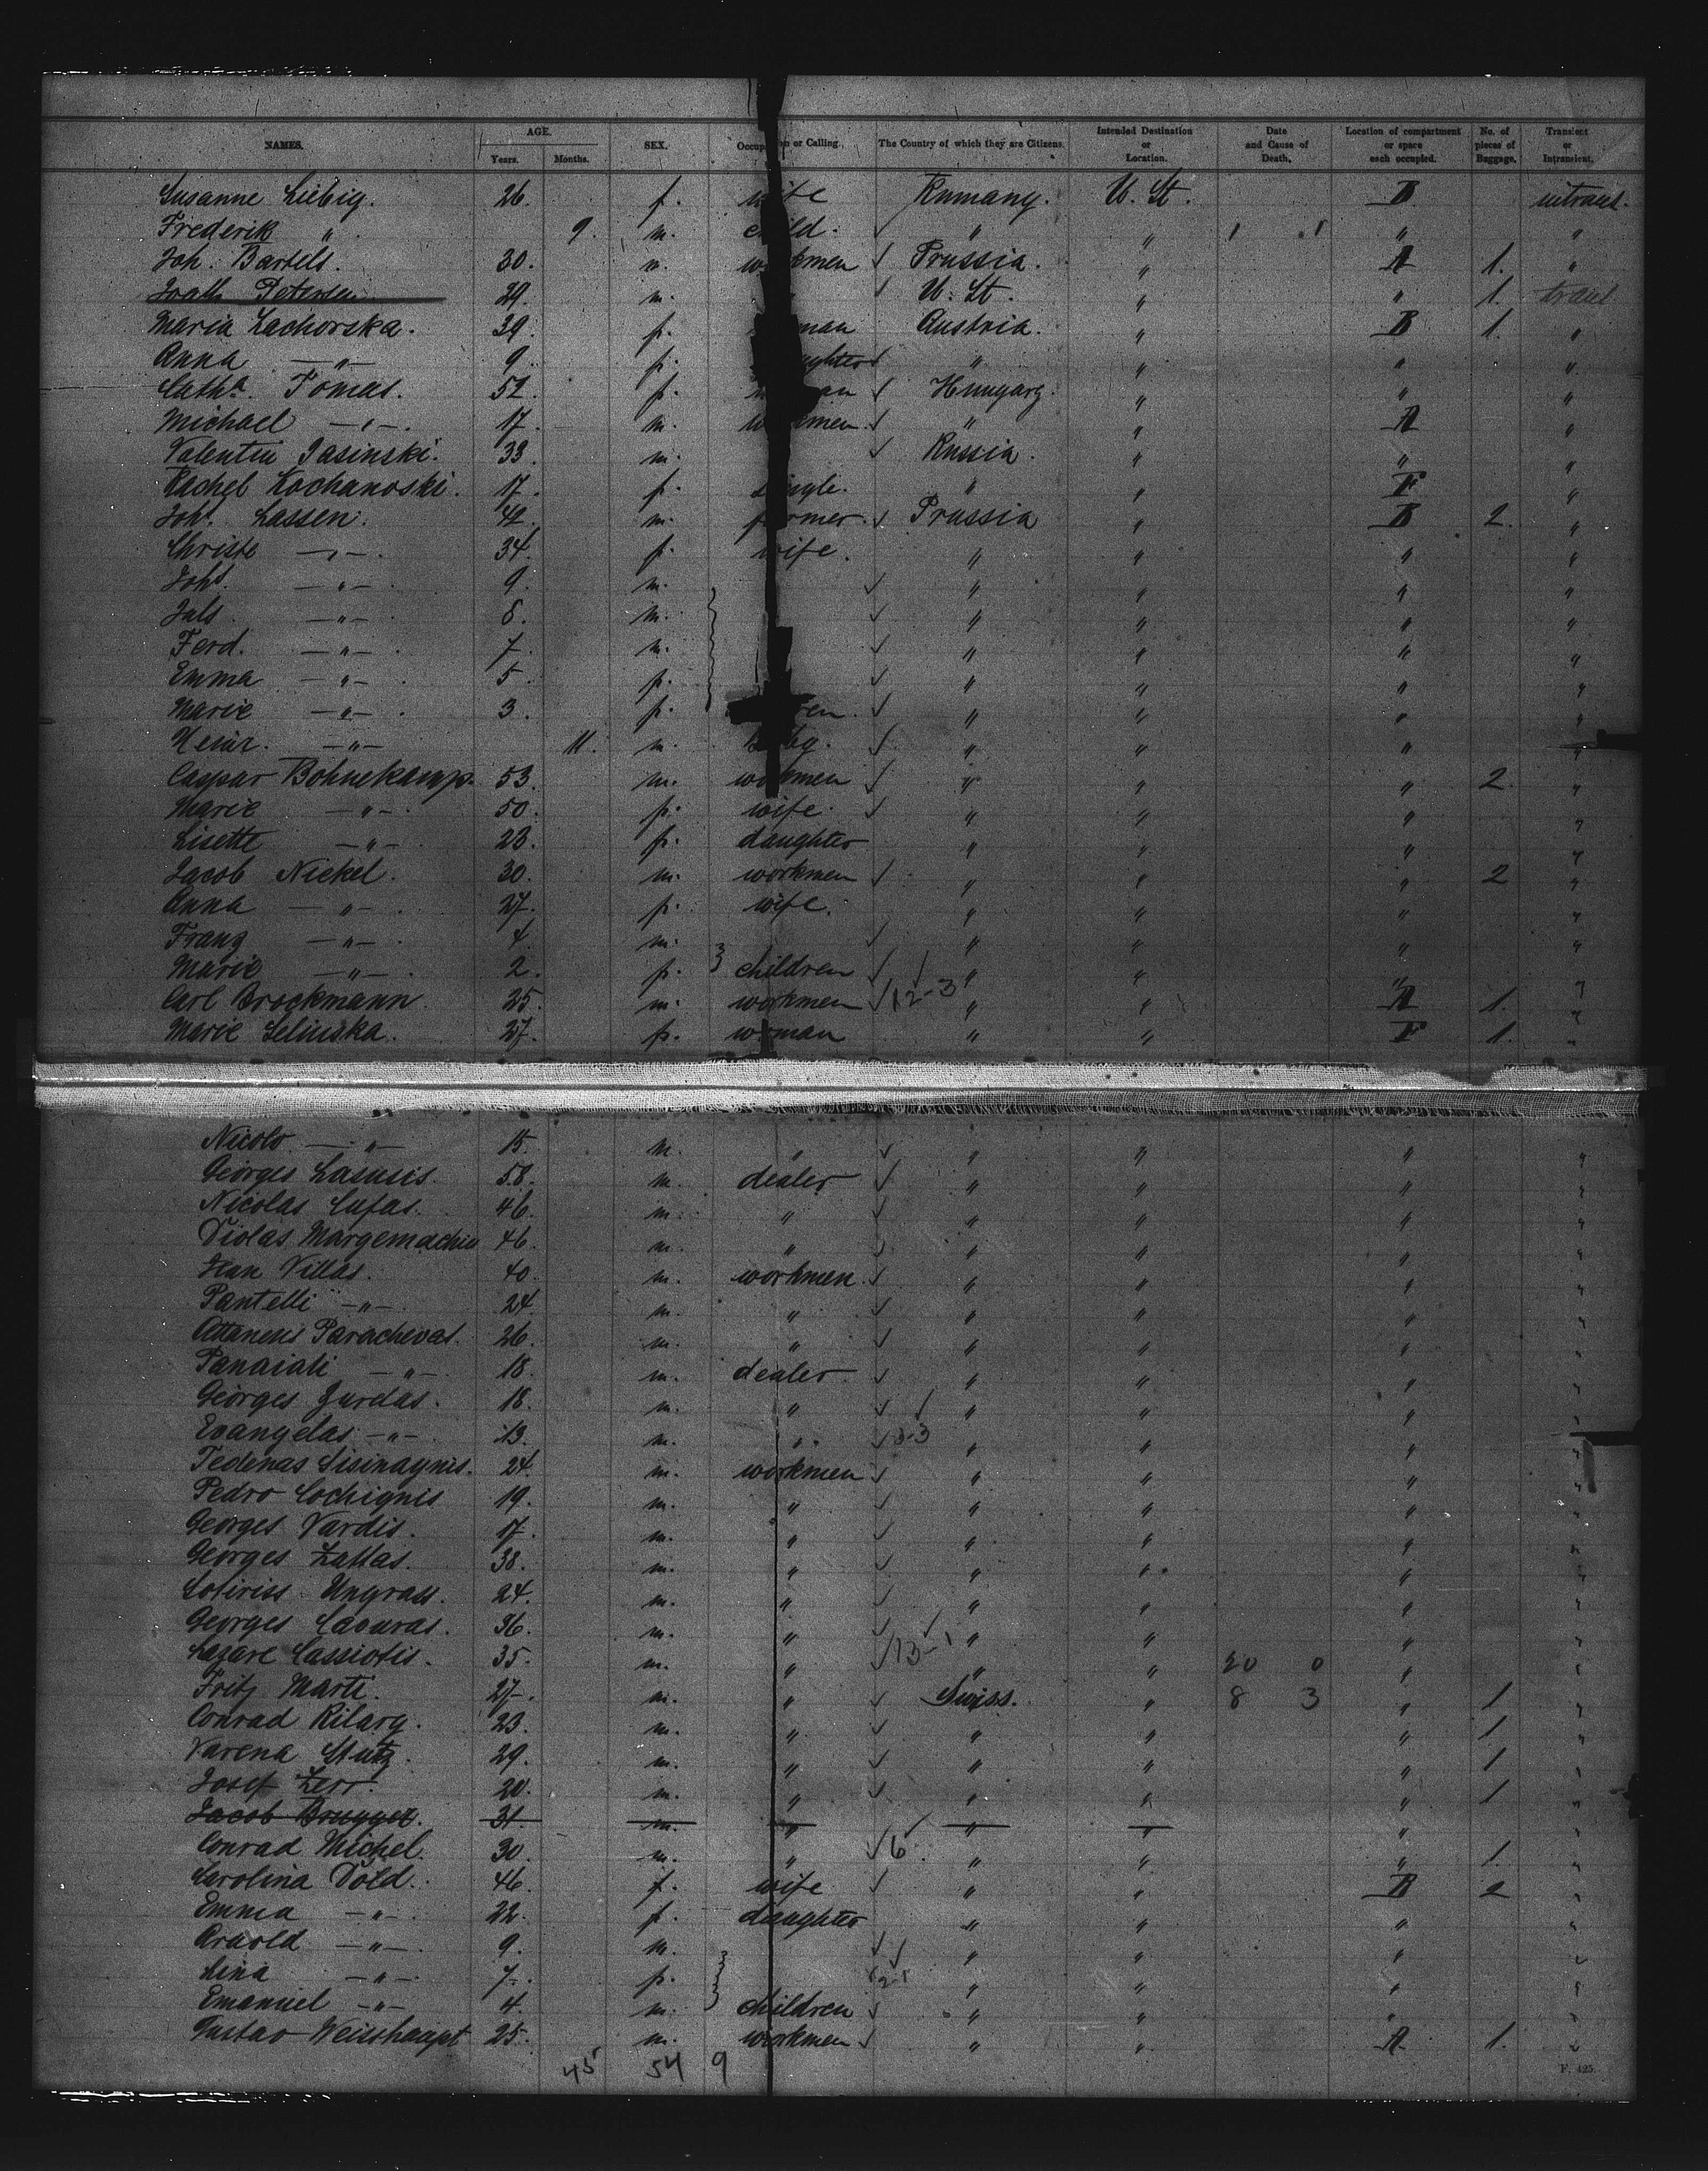 NAMES. AGE. Years. Months. SEX. Occup on or Calling. The Country of which they are Citizens. Intended Destination or Location. Date and Cause of Death, Location of compartment or space each occupied. No. of pieces of Baggage. Transient or Intransient.
Susanne Liebig. 26. f. wife Rumany. U. St. B intrant.
Frederik " 9. m. child. " " " "
Joh. Bartels. 30. m. workmen Prussia. " A 1. "
Petersen 29. m. U. St. " " 1. trant
Maria Lachorska. 39. f. man Austria. " B 1. "
Anna — " — 9. f. ughter " " " "
Cath.a Tomas. f. an Hungary. " " "
Michael — " — 17. m. workmen " " A "
Valentin Jasinski. 33. m. Russia. " " "
Rachel Kochanoski. 17. f. single. " " F "
Joh. Lassen. 42. m. farmer Prussia " B 2. "
Christe — " — 34. f. wife. " " " "
Joh. — " — 9. m. " " " "
Juls — " — 8. m. " " " "
Ferd. — " — 7. m. " " " "
Emma — " — 5. f. " " " "
Marie — " — 3. f. ren. " " " "
Heinr. — " — 11. m. " " " "
Caspar Bohnekamp. 53. m. workmen " " " 2. "
Marie — " — 50. f. wife. " " " "
Lisette — " — 23. f. daughter " " " "
Jacob Nickel. 30. m. workmen " " " 2 "
Anna — " — 27. f. wife. " " " "
Franz — " — 4. m. " " " "
Marie — " — 2. f. children " " " "
Carl Brockmann 25. m. workmen 12-3 " " A 1. "
Marie Selinska. 27. f. woman " " F 1. "
Nicolo — " — 15. m. " " " " "
Georges Lasusis. 58. m. dealer " " " "
Nicolas Cufas. 46. m. " " " " "
Violas Margemachin 46. m. " " " " "
Jean Villas. 40. m. workmen " " " "
Pantelli — " — 24. m. " " " " "
Paracheval. 26. m. " " " " "
Panaiali — " — 18. m. dealer " " " "
Georges Zurdas. 18. m. " " " " "
Evangelas — " — 13. m. " " " " "
Tedenas Sisinaynis. 24. m. workmen " " " "
Pedro Cochignis 19. m. " " " " "
Georges Vardis. 17. m. " " " " "
Georges Zallas. 38. m. " " " " "
Sotiriss Ungrass. 24. m. " " " " "
Georges Caouras. 36. m. " " " " "
Lazare Cassiotis. 35. m. " 13-1 " " 20 0 " "
Fritz Marti. 27. m. " Swiss. " 8 3 " 1 "
Conrad Rilarg. 23. m. " " " " 1 "
Varena Stutz. 29. m. " " " " 1 "
Josef Zerr. 20. m. " " " " 1 "
Jacob Brugger. 31. m. " " " " "
Conrad Michel. 30. m. " 6 " " " 1. "
Carolina Vold. 46. f. wife " " B 2 "
Emma — " — 22. f. daughter " " " "
Arnold — " — 9. m. " " " "
Lina — " — 7. f. 2-1 " " " "
Emanuel — " — 4. m. children " " " "
Gustav Weisshaupt 25. m. workmen " " A 1. "
45 54 9
F. 425.